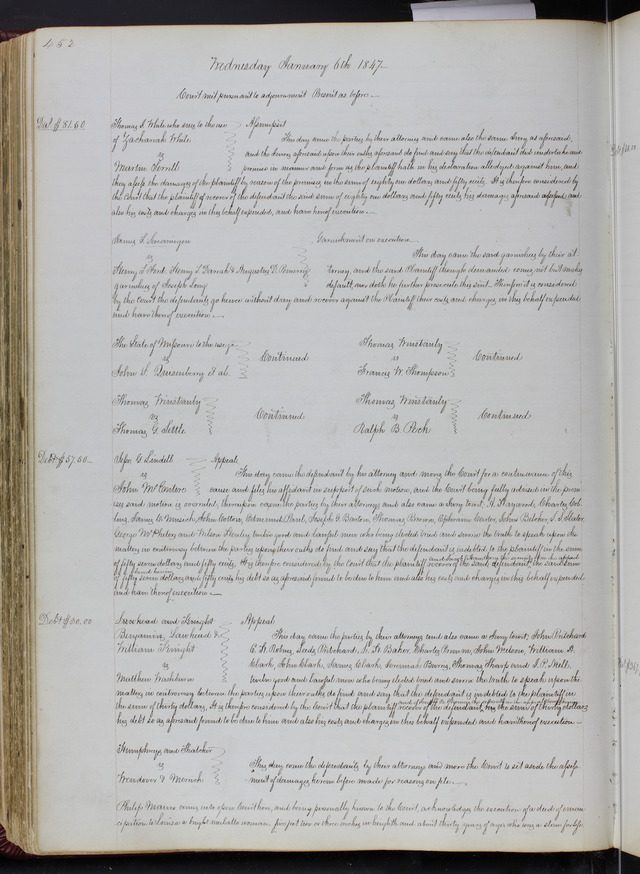 452
Wednesday January 6th 1847
Court met pursuant to adjournment Present as before
Dat. $81.50
Thomas J. White who sues to the use Assumpsit
of Zachariah White This day came the parties by their attornies and came also the same Jury as aforesaid,
vs and the Jurors aforesaid upon their oaths aforesaid do find and say that the defendant did undertake and
Martin promise in manner and form as the plaintiff hath in his declaration alledged against him, and
they assess the damages of the plaintiff by reason of the premises in the sum of eighty one dollars and fifty cents. It is therefore considered by
the Court that the plaintiff recover of the defendant the said sum of eighty one dollars and fifty cents his damages aforesaid assessed and
also his costs and charges in this behalf expended, and have thereof execution.
Swearingen Garnishment on execution
vs This day came the said garnishees by their at
Henry S. Ford, Henry L. & Augustus torney, and the said Plaintiff though demanded comes not but makes
garnishees of Joseph Long default, nor doth he further prosecute this suit. Therefore it is considered
by the Court the defendants go hence without day and recover against the Plaintiff their costs and charges in this behalf expended
and have thereof execution
The State of Missouri to the use &c
vs Continued
John S. Quisenberry et al.
Thomas Winstanly
vs Continued
Francis W. Thompson
Thomas Winstanly
vs Continued
Thomas G. Settle
Thomas Winstanly
vs Continued
Ralph B. Peck
Debt $57.50
Jesse G. Lindell Appeal
vs This day came the defendant by his attorney and moves the Court for a continuance of this
John cause and files his affidavit in support of such motion, and the Court being fully advised in the prem
ises said motion is overruled, thereupon came the parties by their attorneys and also came a Jury towit; Haywood, Charles Col
lins, James John Edmund Paul, Joseph G. Barton, Thomas Brown, Ephraim John Belcher,
George and Wilson twelve good and lawful men who being elected tried and sworn the truth to speak upon the
matters in controversy between the parties upon their oaths do find and say that the defendant is indebted to the plaintiff in the sum
of fifty seven dollars and fifty cents. It is therefore considered by the Court that the plaintiff recover of the said defendant the said sum
of fifty seven dollars and fifty cents his debt so as aforesaid found to be due to him and also his costs and charges in this behalf expended
and have thereof execution
Debt $30.00
Lawhead and Knight Appeal
Benjamin Lawhead & This day came the parties by their attorneys and also came a Jury towit; John Pritchard
William Knight Pritchard, Baker, Charles John Nelson, William D.
vs Clark, John Clark, James Clark, Jeremiah Burns, Thomas Sharp and
Matthew Washburn twelve good and lawful men who being elected tried and sworn the truth to speak upon the
matters in controversy between the parties upon their oaths do find and say that the defendant is indebted to the plaintiff in
the sum of thirty dollars, It is therefore considered by the Court that the plaintiff recover of the defendant, the sum of thirty dollars
his debt so as aforesaid found to be due to him and also his costs and charges in this behalf expended and have thereof execution
Humphreys and Thatcher
vs This day came the defendants by their attorney and move the Court to set aside the assess
Wendover & ment of damages herein before made for reasons on file
Philip came into open Court here, and being personally known to the Court, acknowledges the execution of a deed of eman
cipation to Louisa a bright mulatto woman, five feet two or three inches in height and about thirty years of age who was a slave for life,